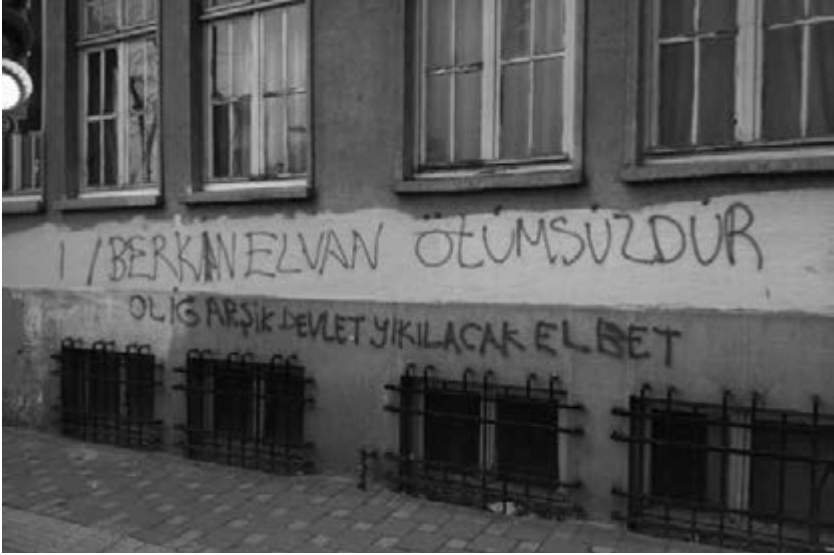 BERKİN ELVAN ÖLÜMSÜZDÜR
OLİGARŞİK DEVLET YIKILACAK ELBET